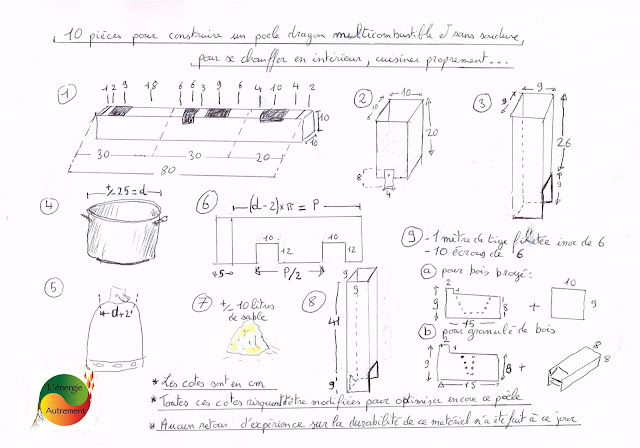 10 pièces pour construire un poele dragon multicombustible et sans soudure,
pour se chauffer en intérieur, cuisiner proprement...
1
1 2 9 18 6 6 3 9 6 4 10 4 2
10
10
30 30 20
80
2
10
10
20
8
4
3
9
9
26
9
4
+/- 25 = d
6
(d-2)×π = P
10 10
12 12
5 P/2
9
- 1 mètre de tige filetée inox de 6
- 10 écrous de 6
a pour bois broyé:
2
9 8
15
+
10
9
b pour granulé de bois
2
9 8
15
+
8
8
5
d+2
7
+/- 10 litres
de sable
8
9
9
41
9
L'énergie
Autrement
* Les cotes sont en cm
* Toutes ces cotes risquent d'être modifiées pour optimiser encore ce poêle
* Aucun retour d'expérience sur la durabilité de ce matériel n'a été fait à ce jour